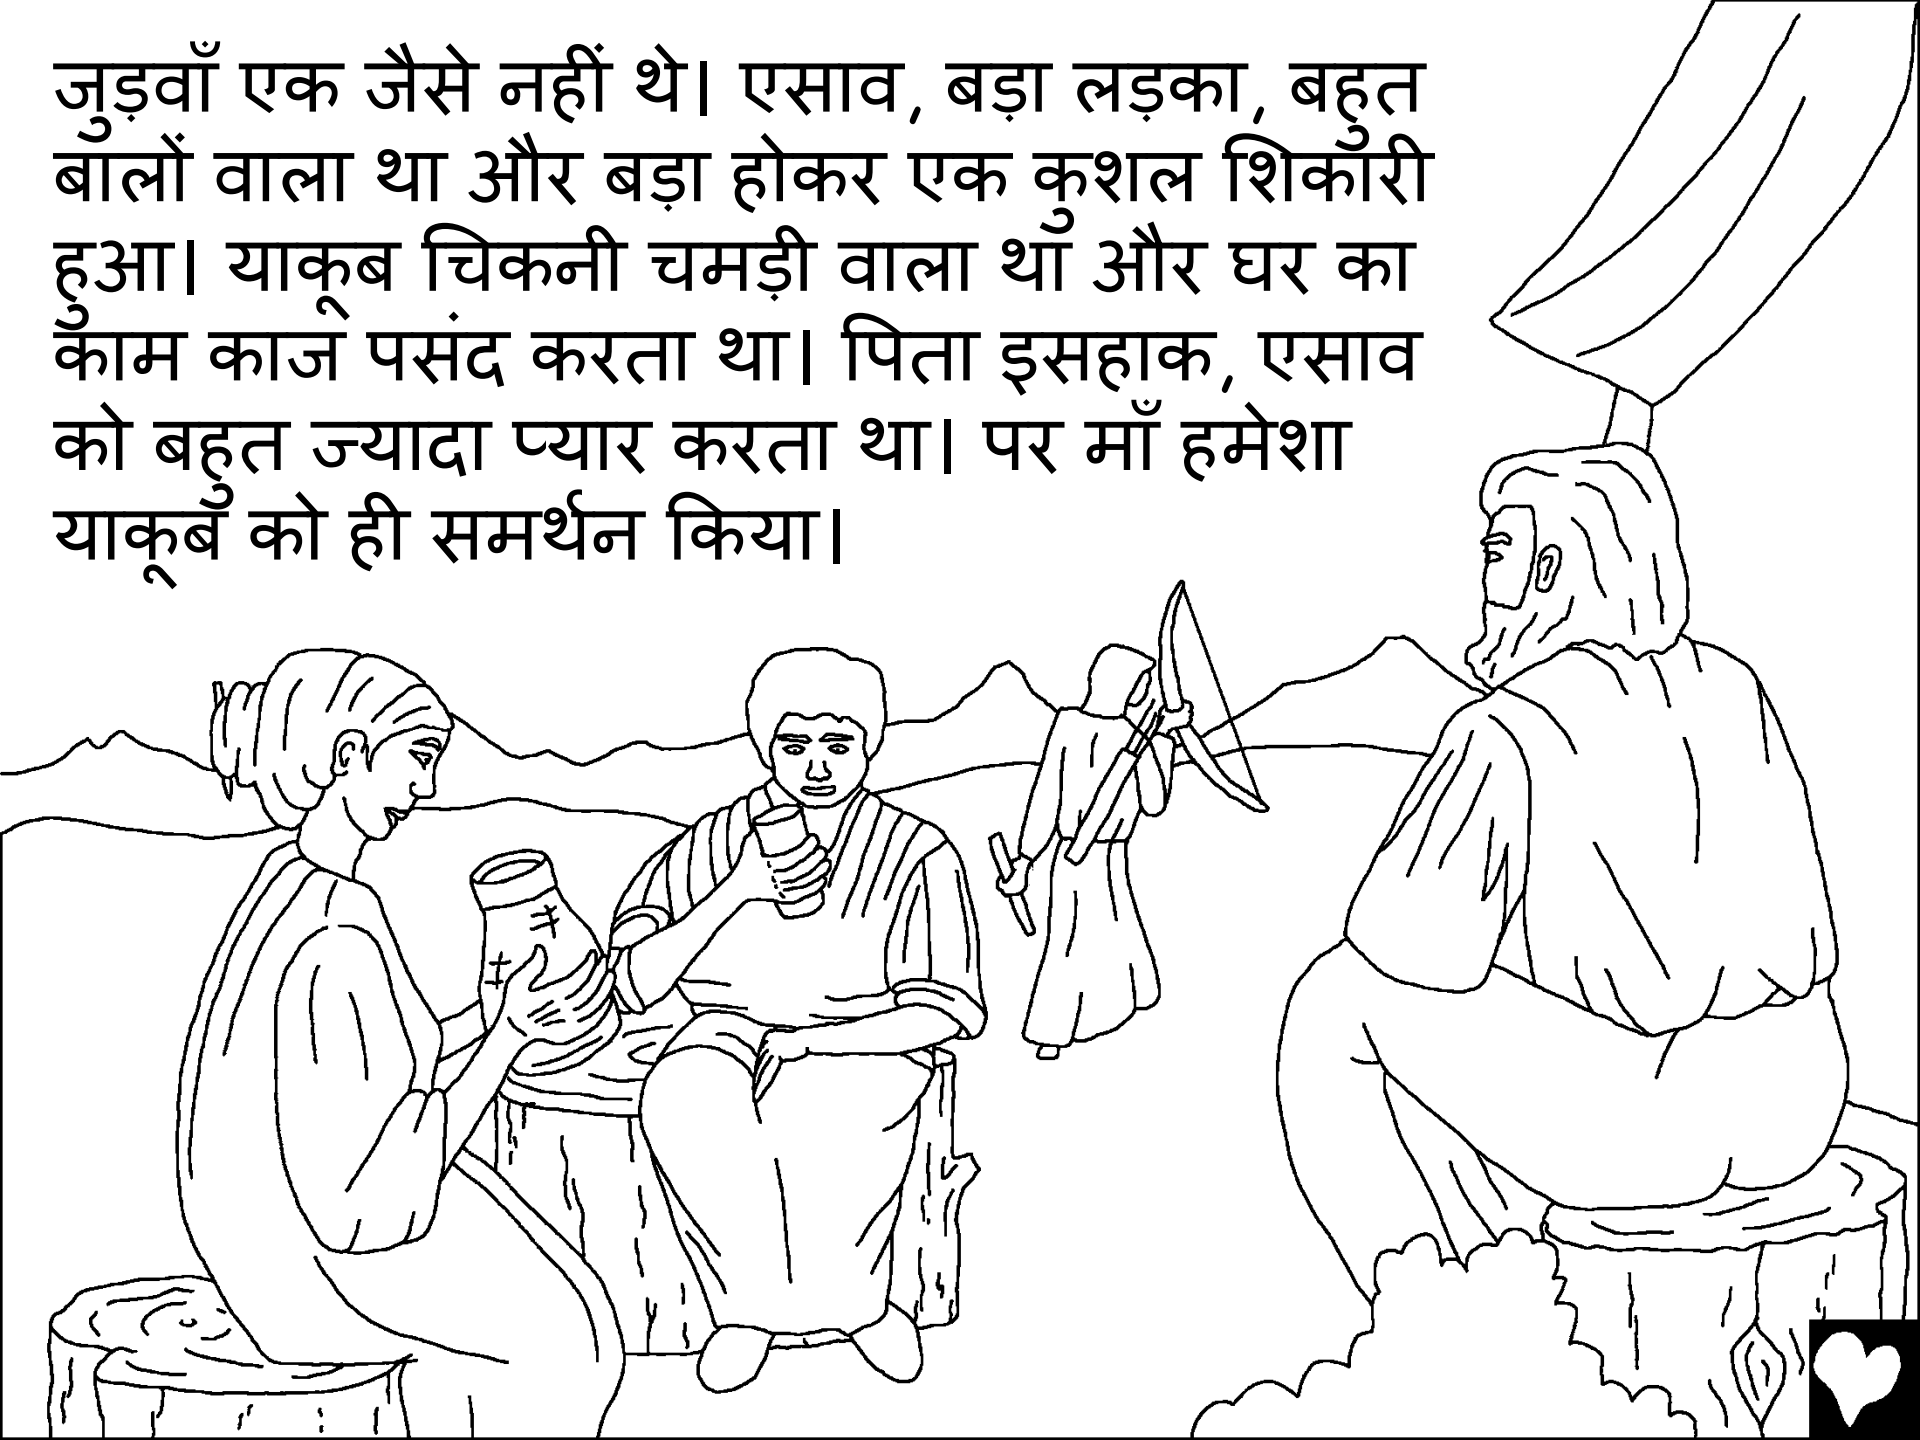 जुड़वाँ एक जैसे नहीं थे। एसाव, बड़ा लड़का, बहुत
बालों वाला था और बड़ा होकर एक कुशल शिकारी
हुआ। याकूब चिकनी चमड़ी वाला था और घर का
काम काज पसंद करता था। पिता इसहाक, एसाव
को बहुत ज्यादा प्यार करता था। पर माँ हमेशा
याकूब को ही समर्थन किया।